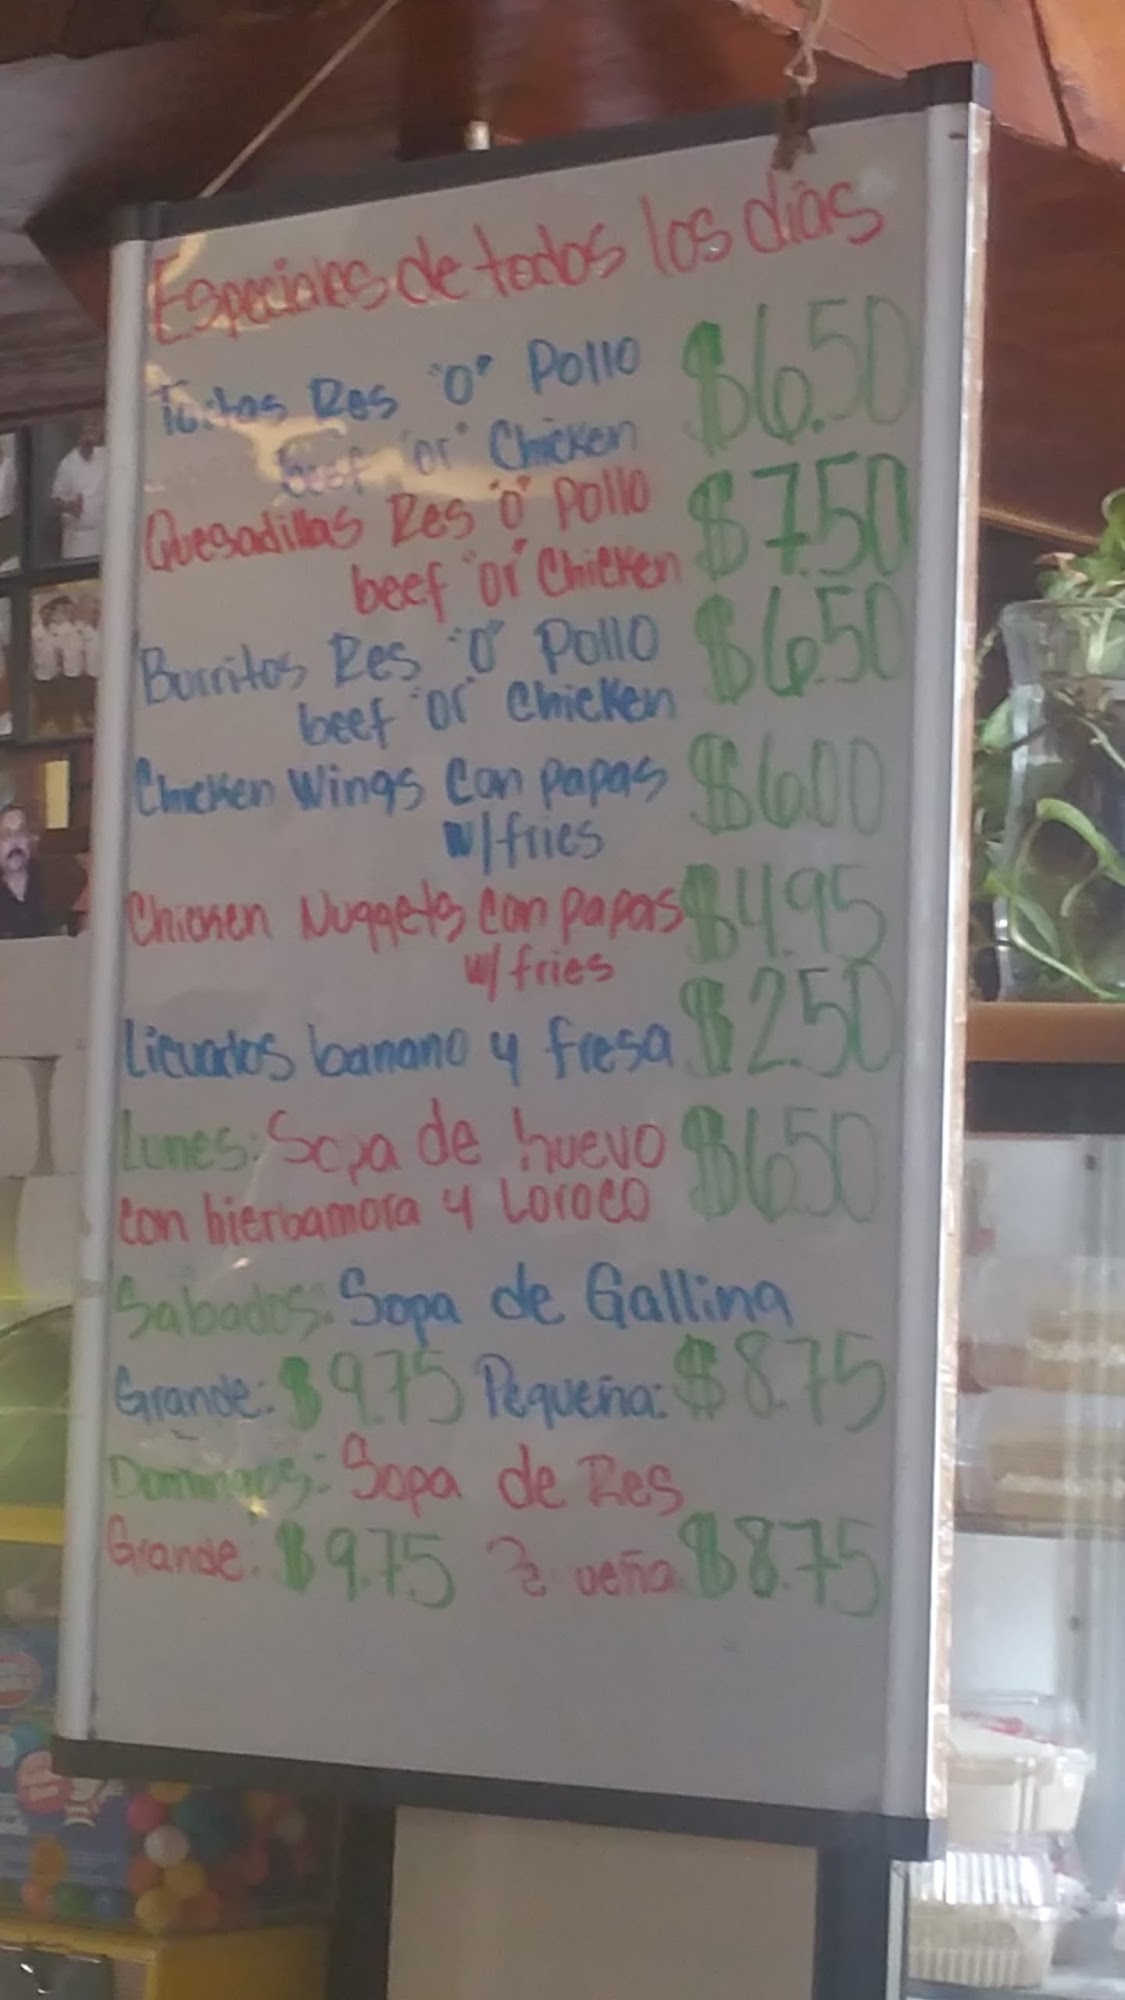 Especiales de todos los dias
Tortas Res "O" Pollo $6.50
beef "or" Chicken
Quesadillas Res "O" Pollo $7.50
beef "or" Chicken
Burritos Res "O" Pollo $6.50
beef "or" Chicken
Chicken Wings Con papas $6.00
w/fries
Chicken Nuggets con papas $4.95
w/fries
Licuados banano y fresa $2.50
Lunes: Sopa de huevo $6.50
con hierbamora y Loroco
Sabados: Sopa de Gallina
Grande: $9.75 Pequeña: $8.75
Domingos: Sopa de Res
Grande: $9.75 $8.75